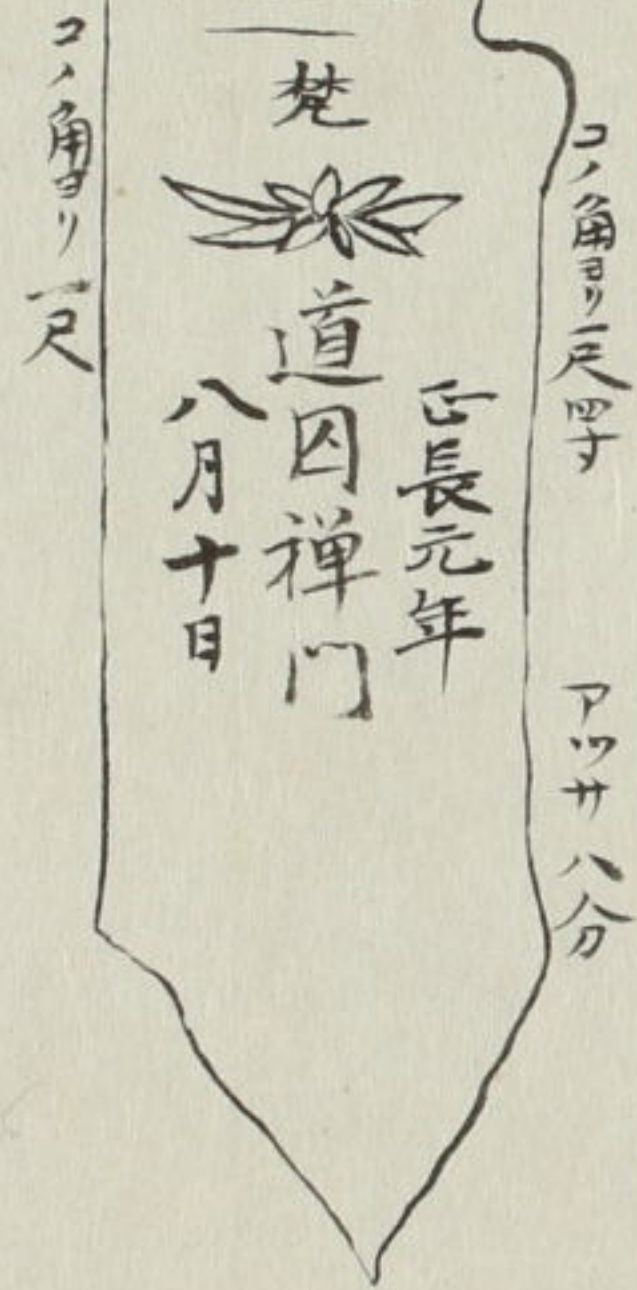 コノ角ヨリ一尺四寸
アツサ八分
梵
正長元年
道囚禅門
八月十日
コノ角ヨリ一尺